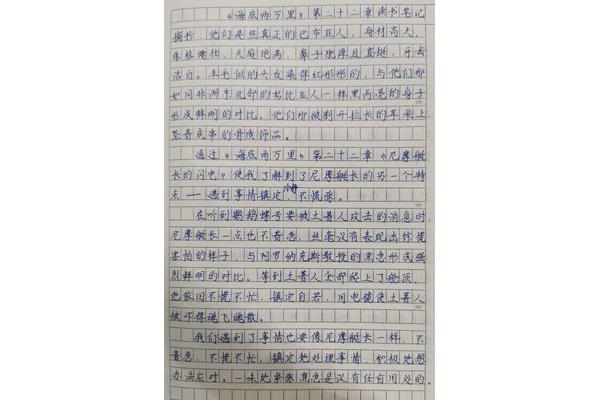 《海底两万里》第二十二章读书笔记
摘抄：他们是些真正的巴布亚人，身材高大，
体格健壮，天庭饱满，鼻子肥厚且直挺，牙齿
洁白。羊毛似的头发染得红彤彤的，与他们那
如同非洲东北部的努比亚人一样黑而亮的身子
形成鲜明的对比。他们那被割开拉长的耳朵上
坠着成串的骨质饰品。
通过《海底两万里》第二十二章《尼摩艇
长的闪电》使我了解到了尼摩艇长的另一个特
点——遇到事情镇定，冷静不慌张。
在听到鹦鹉螺号要被土著人攻击的消息时，
尼摩艇长一点也不着急，丝毫没有表现出惊慌
害怕的样子，与阿罗纳克斯教授的焦急形成强
烈鲜明的对比。等到土著人全部爬上了舱顶，
他依旧不慌不忙，镇定自若，用电镜使土著人
被吓得魂飞魄散。
我们遇到了事情也要像尼摩艇长一样，不
着急，不慌不忙，镇定地处理事情，积极地想
办法应对。一味地紧张焦急是没有任何用处的。